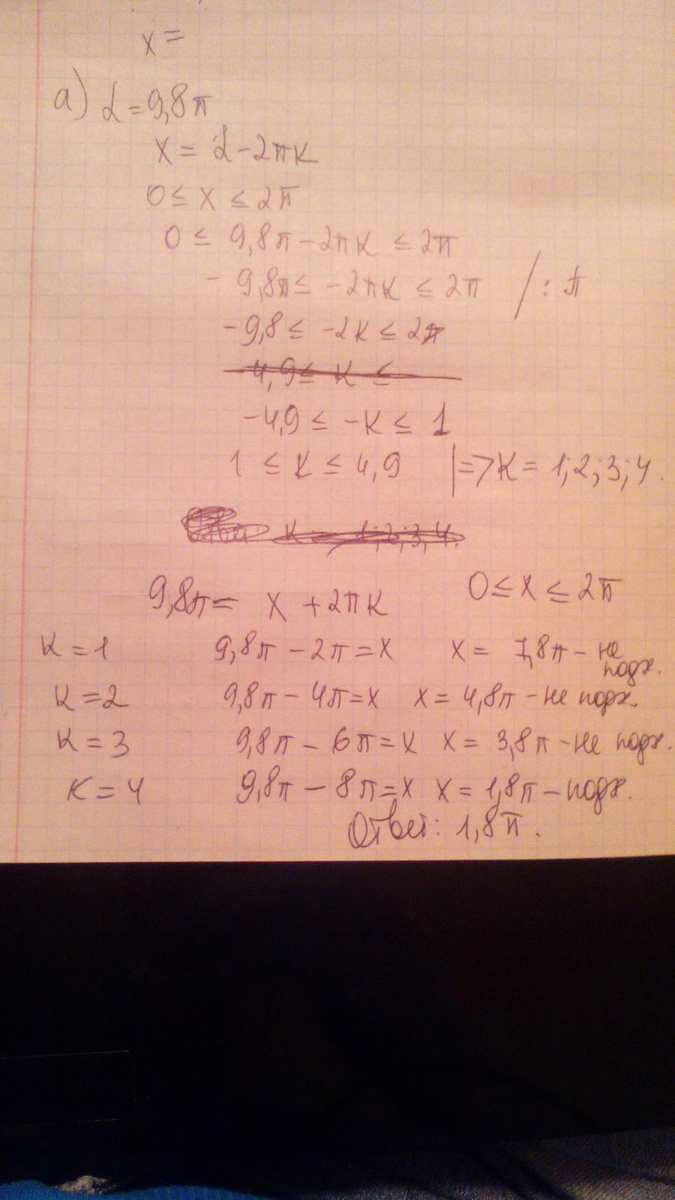 x =
а) α = 9,8π
x = α - 2πк
0 ≤ x ≤ 2π
0 ≤ 9,8π - 2πк ≤ 2π
- 9,8π ≤ - 2πк ≤ 2π / : π
- 9,8 ≤ - 2к ≤ 2π
4,9 ≤ к ≤
- 4,9 ≤ - к ≤ 1
1 ≤ к ≤ 4,9 |=> к = 1; 2; 3; 4.
к 1; 2; 3; 4.
9,8π = x + 2πк 0 ≤ x ≤ 2π
к = 1 9,8π - 2π = x x = 7,8π - не подх.
к = 2 9,8π - 4π = x x = 4,8π - не подх.
к = 3 9,8π - 6π = x x = 3,8π - не подх.
к = 4 9,8π - 8π = x x = 1,8π - подх.
Ответ: 1,8π.